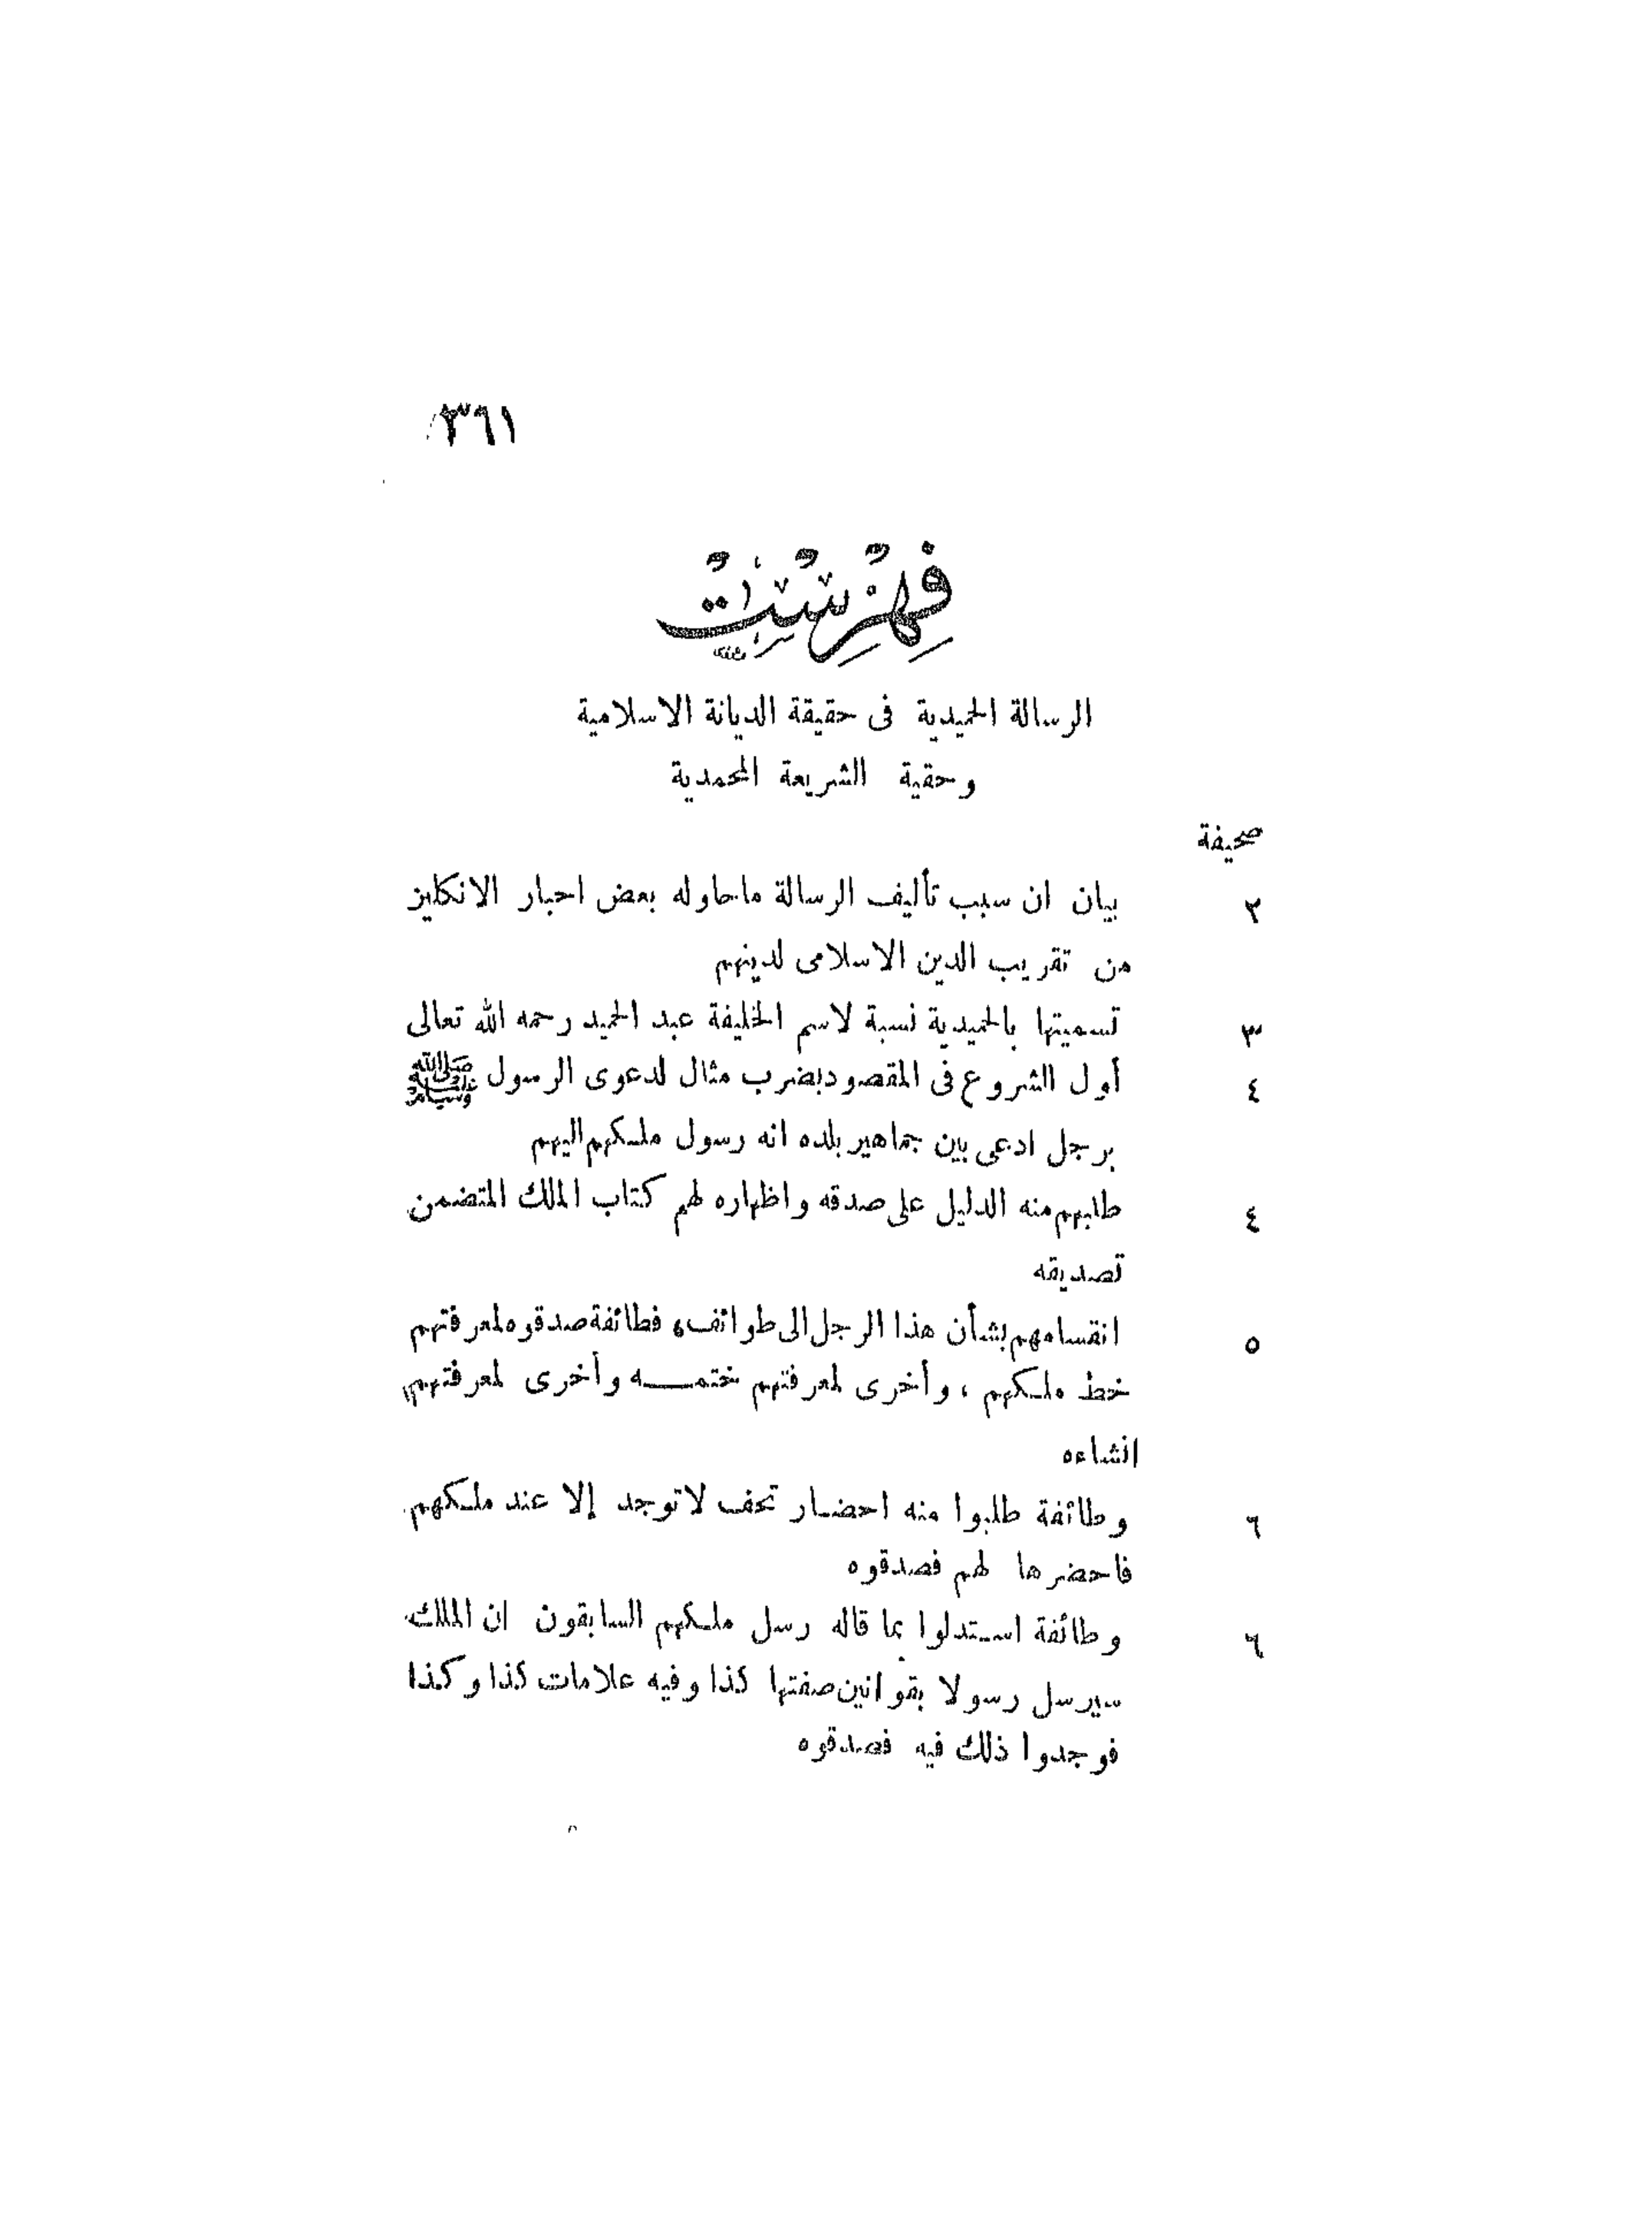 ٣٦١
فِهْرِسْتُ
الرسالة الحميدية فى حقيقة الديانة الاسلامية
وحقية الشريعة المحمدية
صحيفة
٢ بيان ان سبب تأليف الرسالة ماحاوله بعض احبار الانكليز
من تقريب الدين الاسلامى لدينهم
٣ تسميتها بالحميدية نسبة لاسم الخليفة عبد الحميد رحمه الله تعالى
٤ أول الشروع فى المقصود بضرب مثال لدعوى الرسول ﷺ
برجل ادعى بين جماهير بلده انه رسول ملكهم اليهم
٤ طلبهم منه الدليل على صدقه واظهاره لهم كتاب الملك المتضمن
تصديقه
٥ انقسامهم بشأن هذا الرجل الى طوائف، فطائفة صدقوه لمعرفتهم
خط ملكهم ، وأخرى لمعرفتهم ختمـــه وأخرى لمعرفتهم
انشاءه
٦ وطائفة طلبوا منه احضـار تحف لاتوجد إلا عند ملكهم
فاحضرها لهم فصدقوه
٦ وطائفة استدلوا بما قاله رسل ملكهم السابقون ان الملك
سيرسل رسولا بقوانين صفتها كذا وفيه علامات كذا وكذا
فوجدوا ذلك فيه فصدقوه